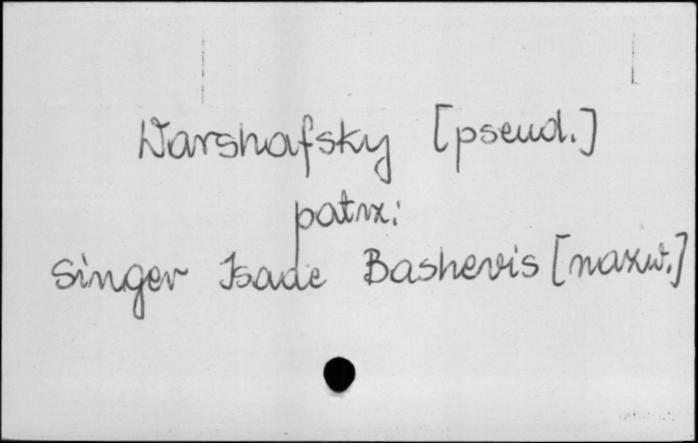 Warshafsky [pseud.]
patrz:
Singer Isaac Bashevis [nazw.]